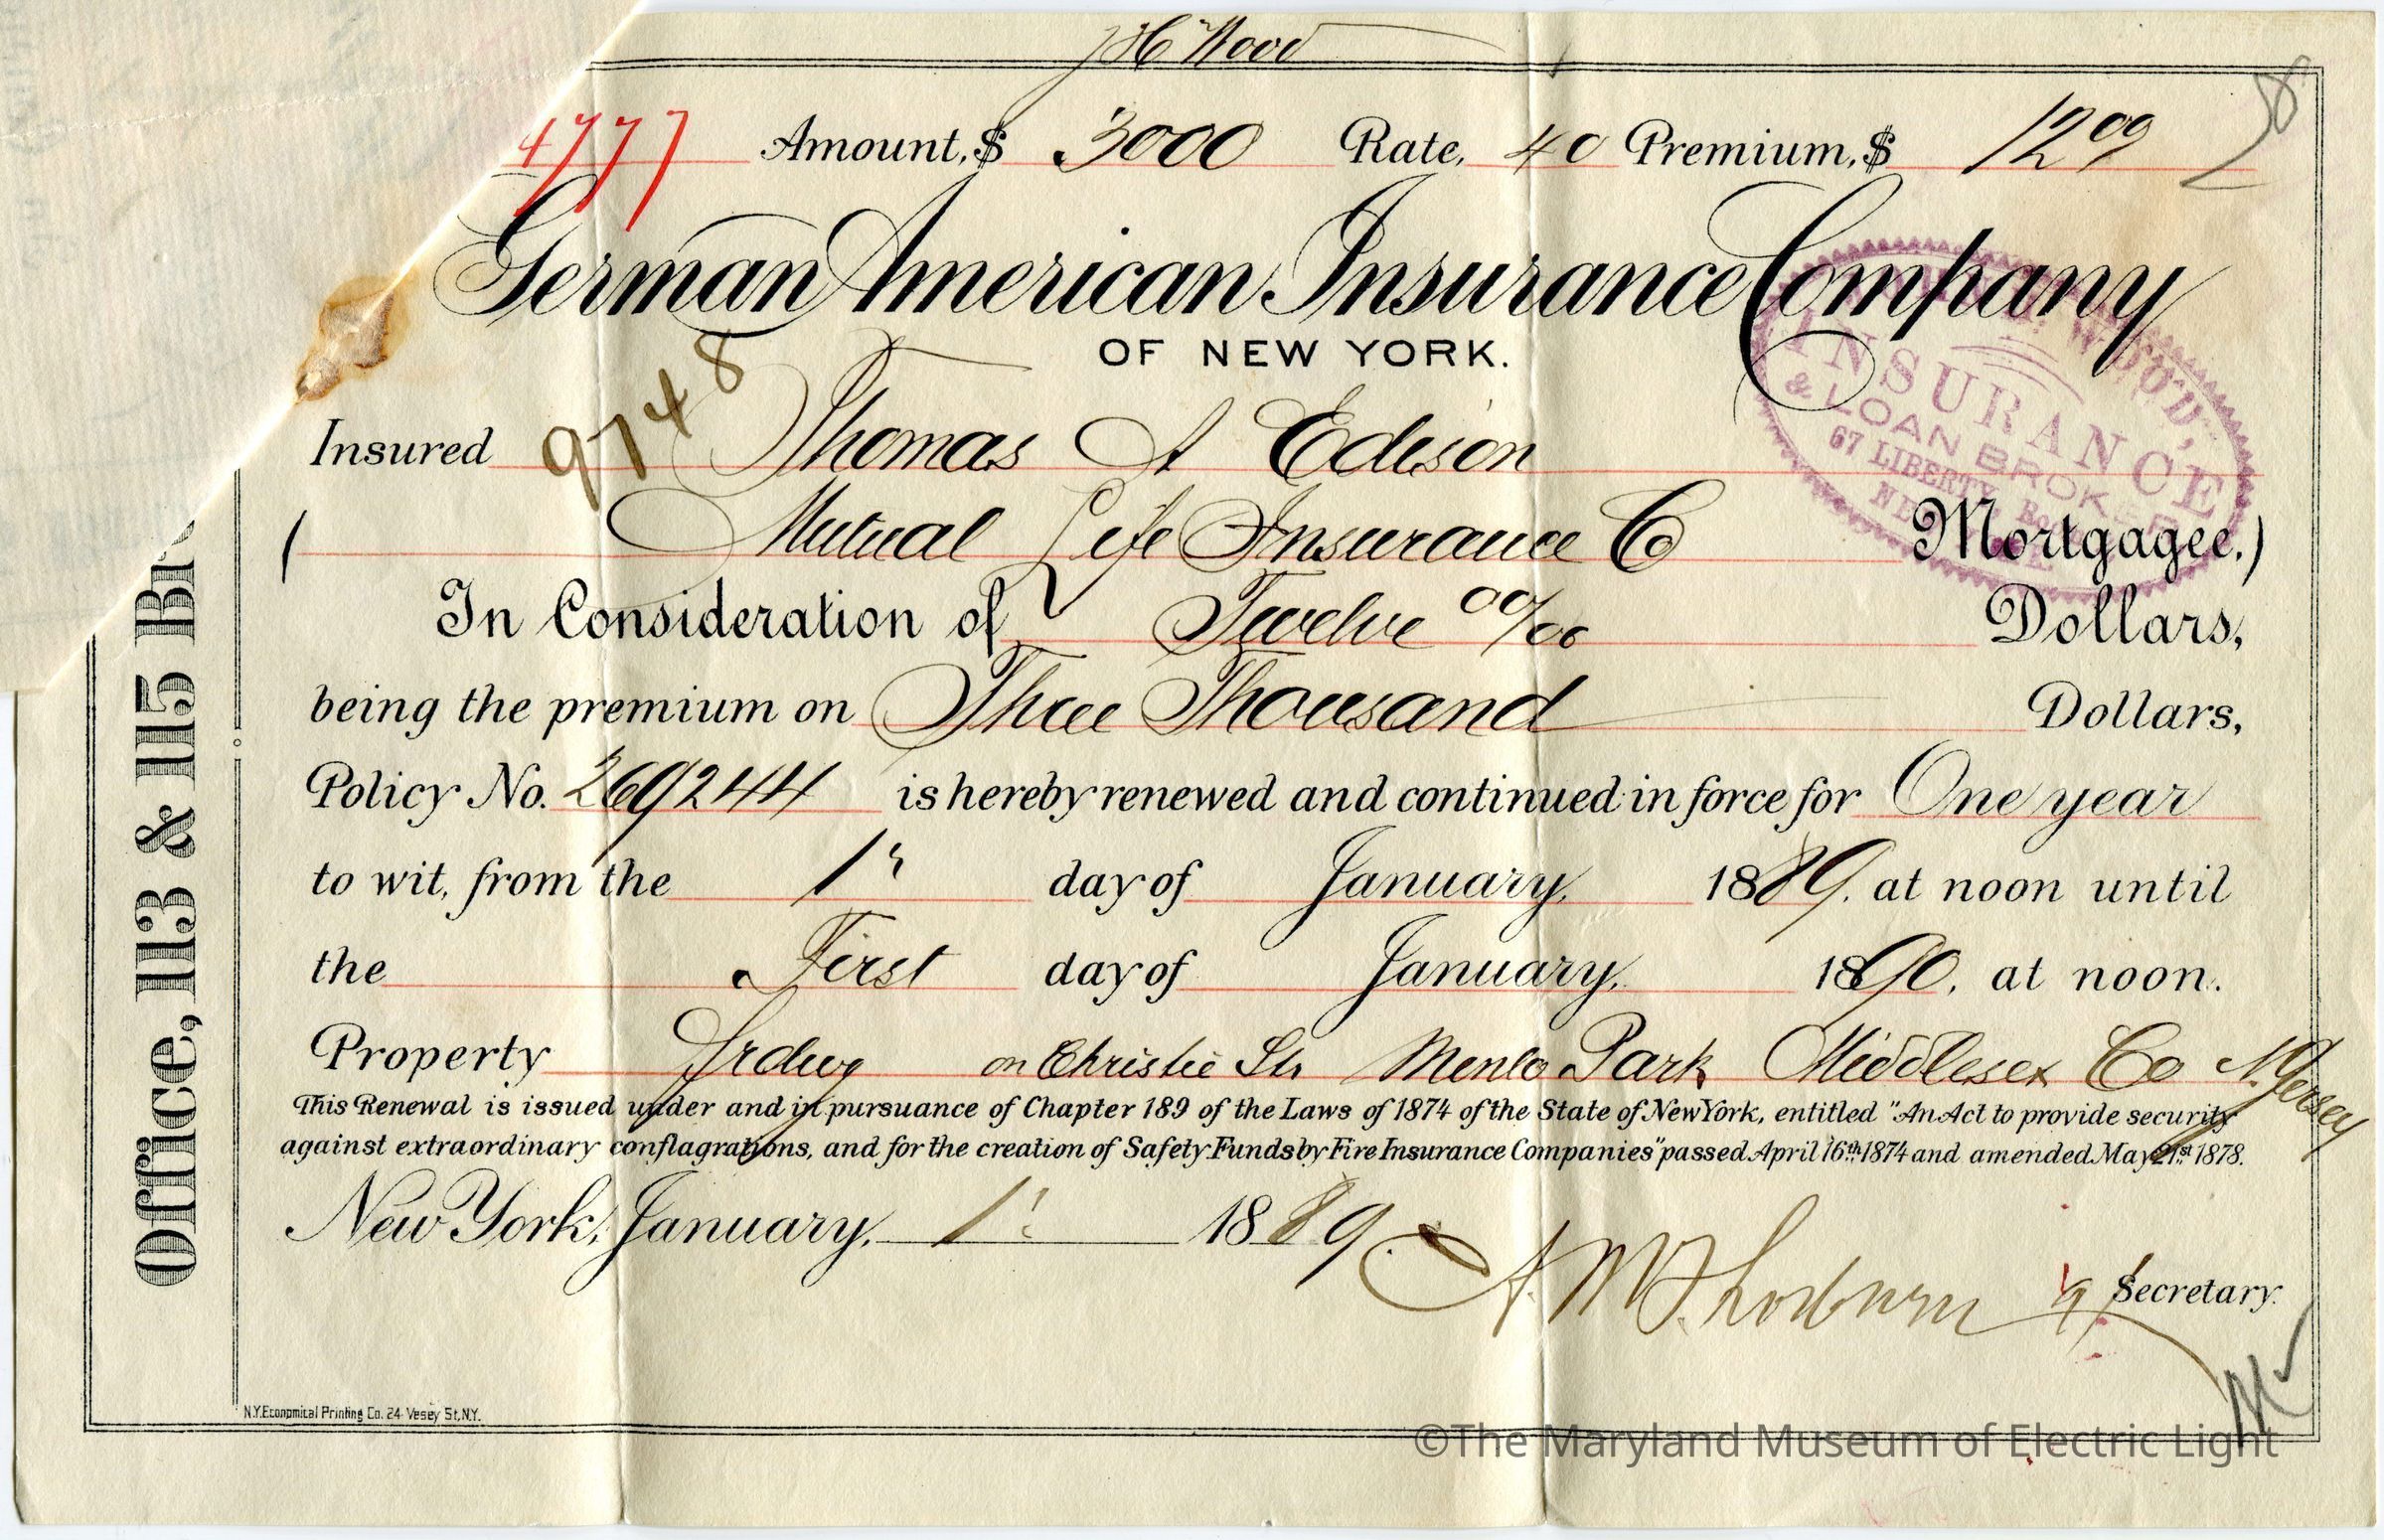 J H Wood
4777 Amount, $ 3000 Rate, 40 Premium, $ 12 00
28
German American Insurance Company
OF NEW YORK.
9748
Insured Thomas A Edison
( Mutual Life Insurance Co Mortgagee.)
In Consideration of Twelve 00/00 Dollars,
being the premium on Three Thousand Dollars,
Policy No. 269244 is hereby renewed and continued in force for One year
to wit, from the 1" day of January, 1889, at noon until
the First day of January, 1890, at noon.
Property on Christie Str Menlo Park Middlesex Co N. Jersey
This Renewal is issued under and in pursuance of Chapter 189 of the Laws of 1874 of the State of New York, entitled "An Act to provide security
against extraordinary conflagrations, and for the creation of Safety Funds by Fire Insurance Companies" passed April 16th 1874 and amended May 21st 1878.
New York, January, 1" 1889.
Secretary.
N.Y. Economical Printing Co. 24 Vesey St, N.Y.
Office, 113 & 115 Br
WOOD,
INSURANCE
& LOAN BROKER
67 LIBERTY
©The Maryland Museum of Electric Light